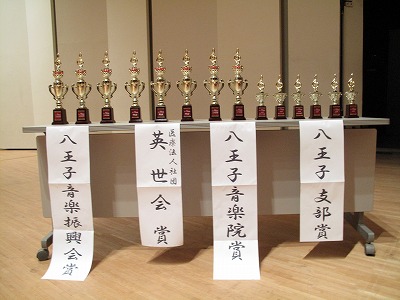 八王子音楽振興会賞
医療法人社団
英世会賞
八王子音楽院賞
八王子支部賞